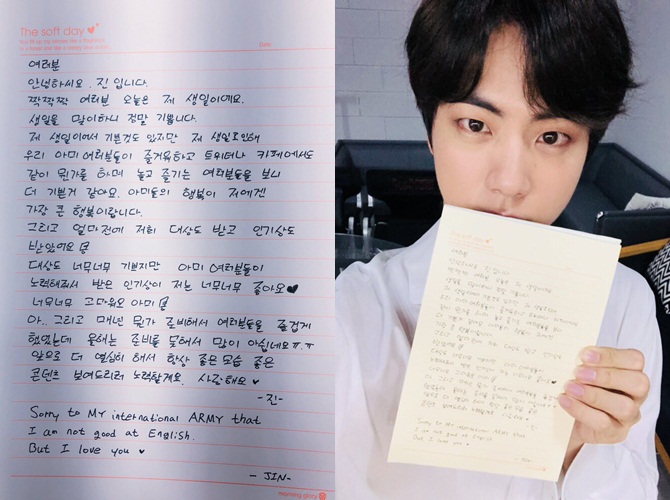 The soft day ♥
Date
여러분
안녕하세요. 진입니다.
짝짝짝 여러분 오늘은 제 생일이에요.
생일을 맞이하니 정말 기쁩니다.
제 생일이어서 기쁜것도 있지만 제 생일로인해
우리 아미여러분들이 즐거워하고 트위터나 카페에서도
같이 뭔가를 하며 놀고 즐기는 여러분들을 보니
더 기쁜거 같아요. 아미들의 행복이 저에겐
가장 큰 행복이랍니다.
그리고 얼마전에 저희 대상도 받고 인기상도
받았어요
대상도 너무너무 기쁘지만 아미 여러분들이
노력해줘서 받은 인기상이 저는 너무너무 좋아요♥
너무너무 고마워요 아미
아.. 그리고 매년 뭔가 준비해서 여러분들을 즐겁게
했었는데 올해는 준비를 못해서 많이 아쉽네요ㅠ.ㅠ
앞으로 더 열심히 해서 항상 좋은모습 좋은
콘텐츠 보여드리려 노력할게요. 사랑해요♥
-진-
Sorry to My international ARMY that
I am not good at English.
But I love you ♥
- JIN -
morning glory